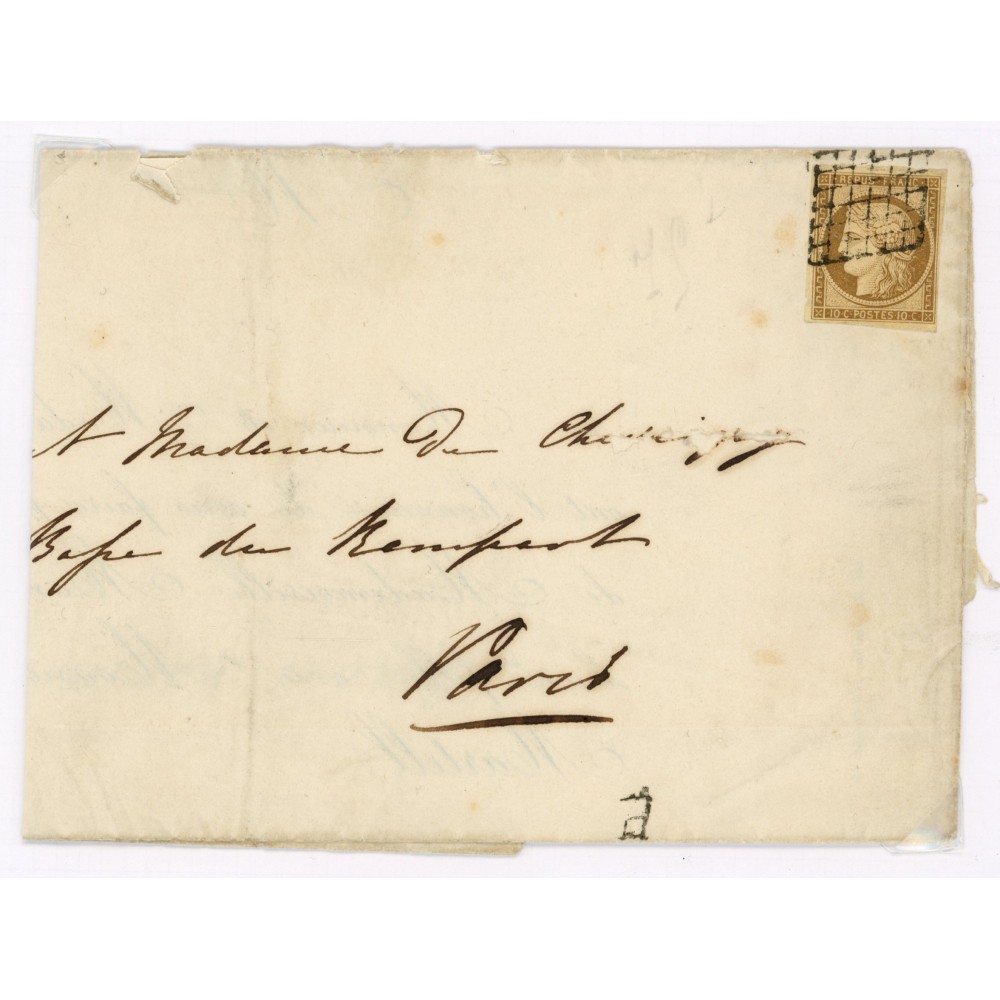 REPUB. FRANC.
10 C. POSTES 10 C.
A Madame De Chevigny
Basse du Rempart
Paris